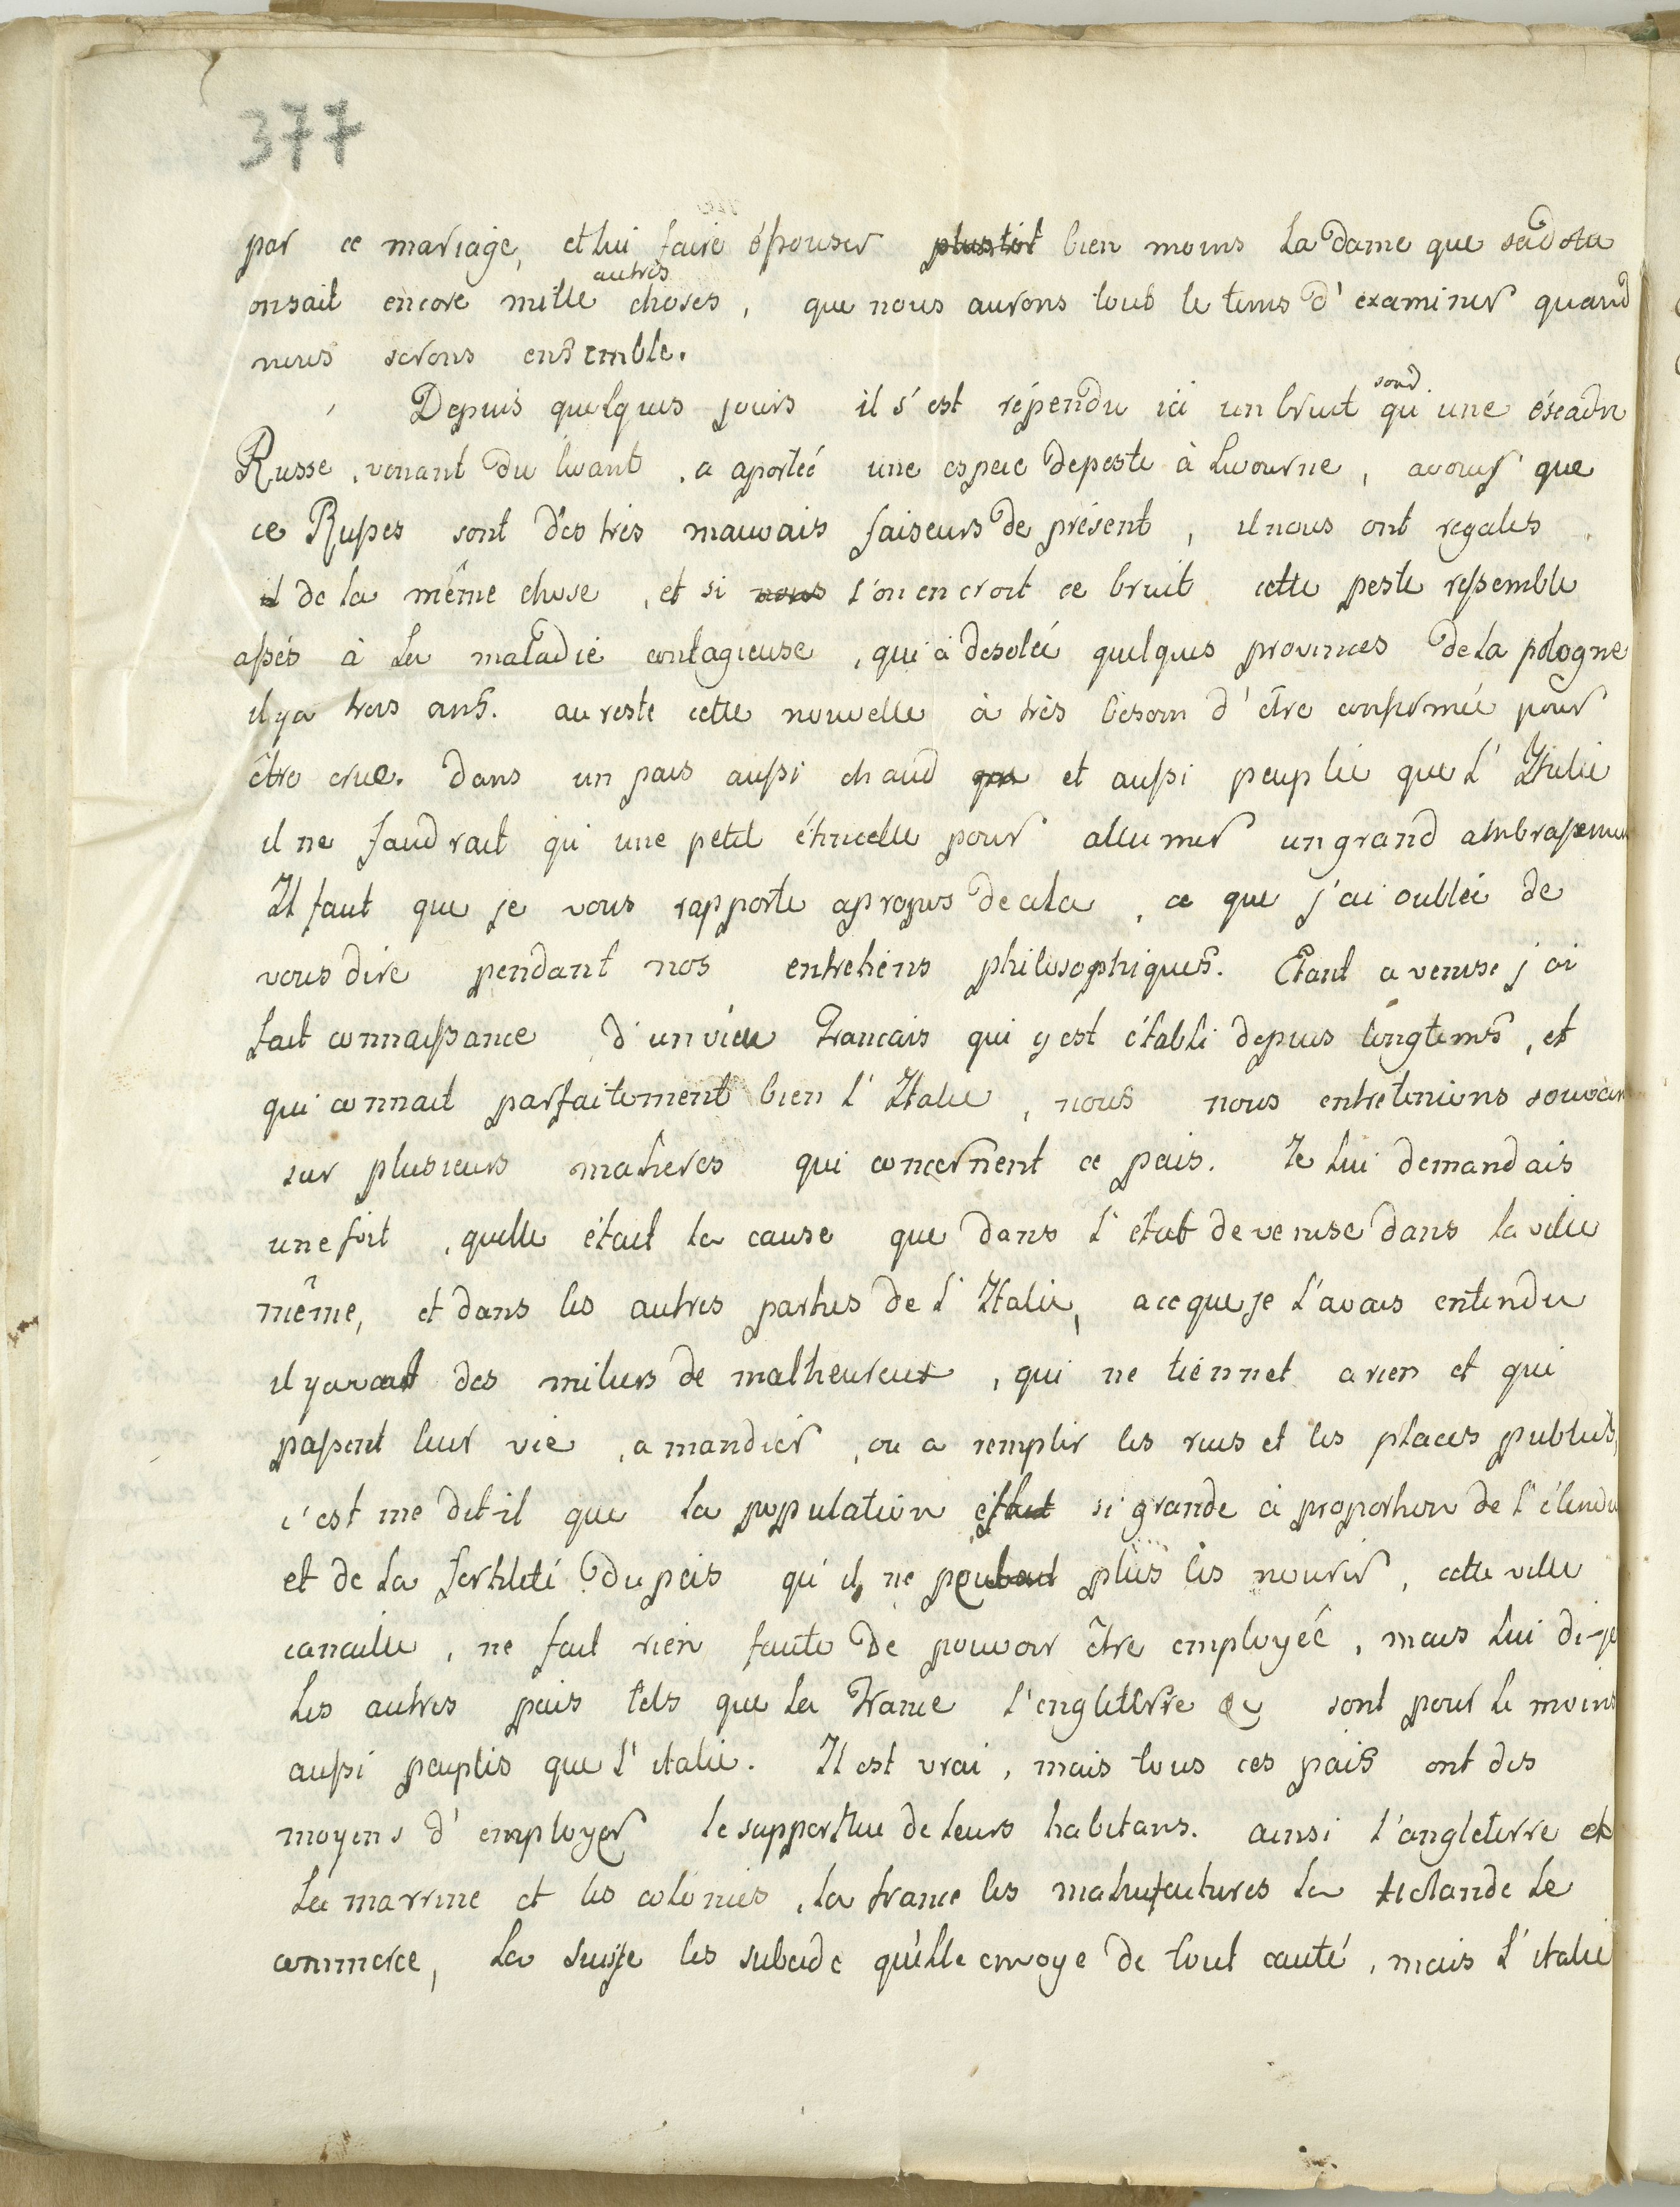 377
par ce mariage, et lui faire épouser plustôt bien moins La dame que sa dote
autres
on sait encore mille choses, que nous aurons tout le tems d'examiner quand
nous serons ensemble.
sourd
Depuis quelques jours il s'est répendu ici un bruit qu'une éscadre
Russe, venant du livant, a aportéé une espece de peste à Livourne, avouez que
ce Russes sont des trés mauvais faiseurs de présent, il nous ont regalés
il de la même chose, et si nous l'on en croit ce bruit cette peste ressemble
assés à La maladie contagieuse, qui à desoleé quelques provinces de la pologne
il y a trois ans. au reste cette nouvelle à très besoin d'être confirmeé pour
être crue. dans un pais aussi chaud que et aussi peupleé que L'Italie
il ne faudrait qu'une petit étincelle pour allumer un grand ambrasemen
Il faut que je vous rapporte apropos de cela, ce que j'ai oubleé de
vous dire pendant nos entretiens philosophiques. Etant a venise j'ai
fait connaissance d'un vieu Francais qui y est établi depuis longtems, et
qui connait parfaitement bien L'Italie, nous nous entretenions souvan
sur plusieurs matieres qui concernent ce pais. Je Lui demandais
une foit, quelle était La cause que dans L'état de venise dans la ville
même, et dans les autres parties de L'Italie, a ce que je L'avais entendu
il y avait des miliers de malheureux, qui ne tiennet a rien et qui
passent leur vie, a mandier, ou a remplir les rues et les places publues,
c'est me dit-il que La population était si grande à proportion de L'étendu
et de La fertileté du pais qu'il ne plus les nourir, cette ville
canaille, ne fait rien faute de pouvoir être employéé, mais Lui di-je
Les autres pais tels que La France L'engleterre &c sont pour Le moins
aussi peuplés que L'italie. Il est vrai, mais tous ces pais ont des
moyens d'employer le supperflue de leurs habitans. ainsi L'angleterre et
La marrine et les colonies, La france les manufactures La Holande Le
commerce, La Suisse les subside qu'elle envoye de tout cauté, mais L'italie